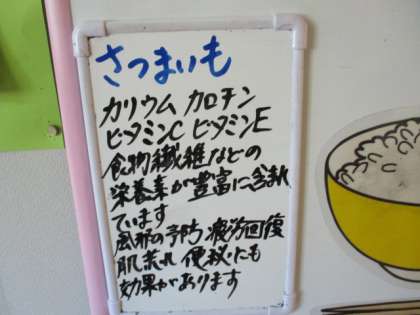 さつまいも
カリウム カロチン
ビタミンC ビタミンE
食物繊維などの
栄養素が豊富に含まれ
ています
風邪の予防 疲労回復
肌荒れ 便秘にも
効果があります